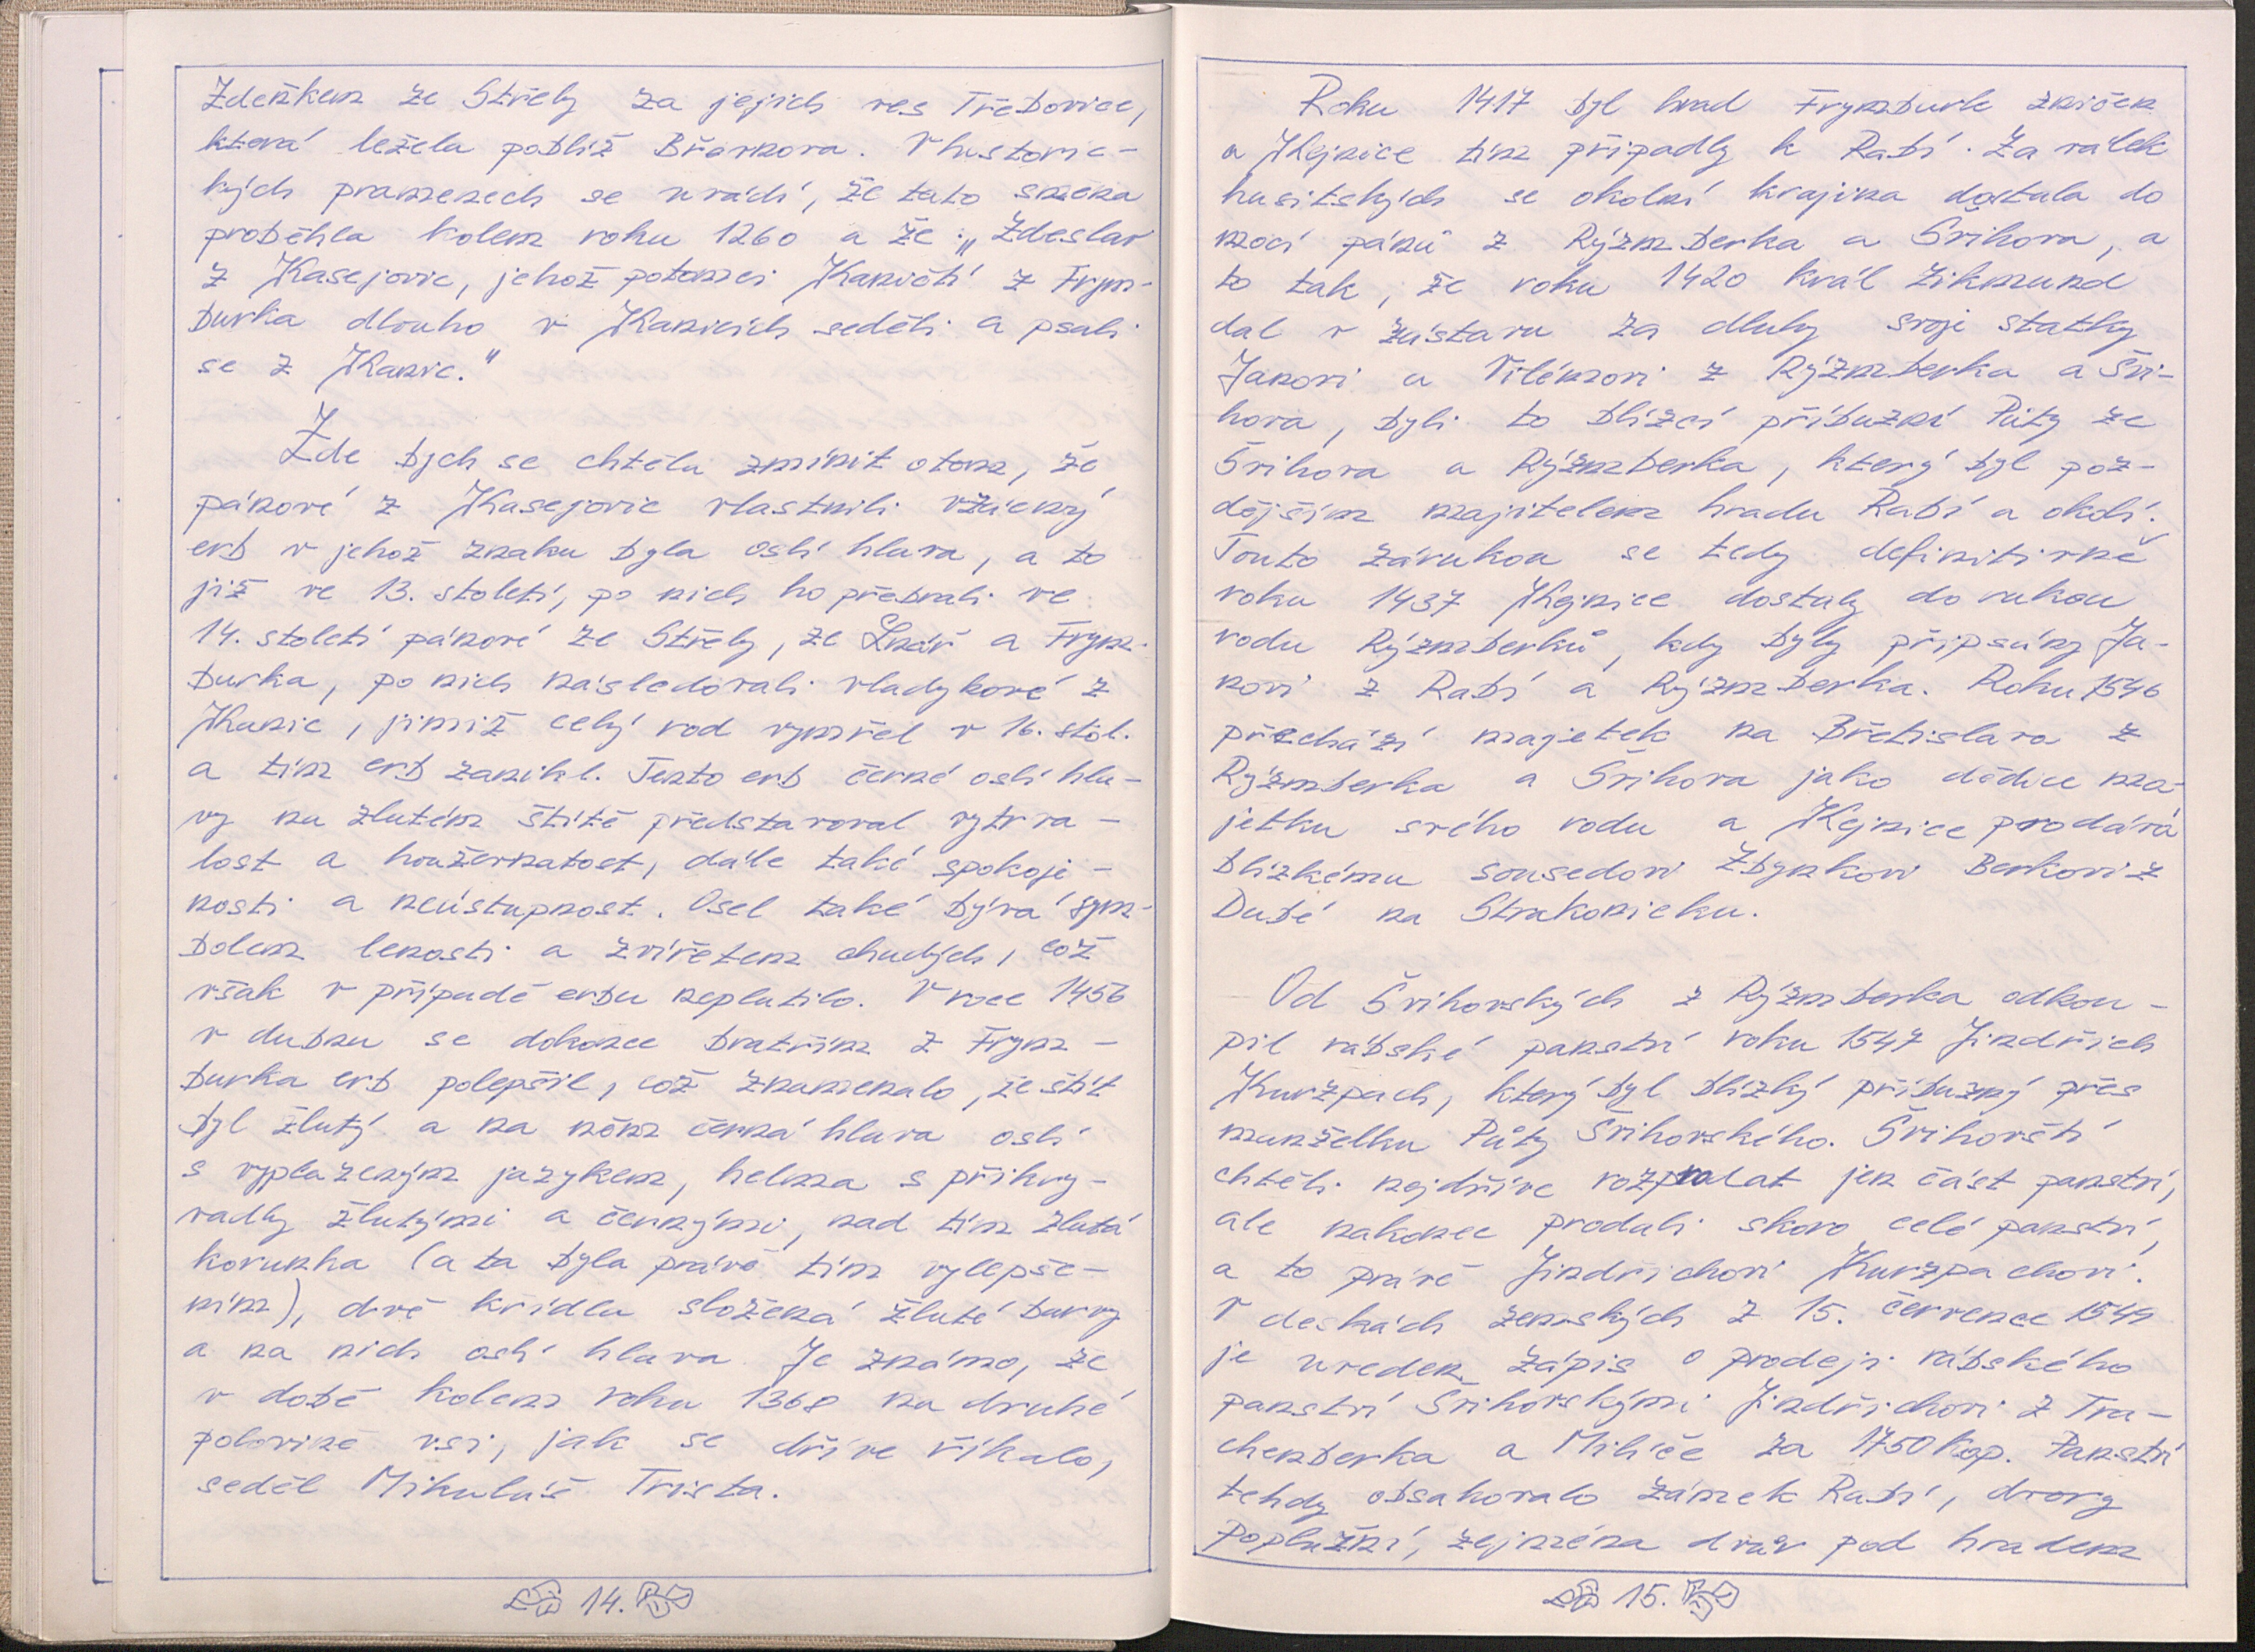 Zdeňkem ze Střely za jejich ves Třebovice,
která ležela poblíž Břežan
kých pramenech se uvádí, že tato směna
proběhla kolem roku 1260 a že: „Zdeslav
z Kasejovic, jehož potomci Kaničtí z Frym-
burka dlouho v Kanicích seděli a psali
se z Kanic."
Zde bych se chtěla zmínit o tom, že
pánové z Kasejovic vlastnili vzácný
erb v jehož znaku byla oslí hlava, a to
již ve 13. století, po nich ho přebrali ve
14. století pánové ze Střely, ze Lnář a Frym-
burka, po nich následovali vladykové z
Kanic, jimiž celý rod vymřel v 16. stol.
a tím erb zanikl. Tento erb černé oslí hla-
vy na žlutém štítě představoval vytrva-
lost a houževnatost, dále také spokoje-
nosti a neústupnost. Osel také bývá sym-
bolem lenosti a zvířetem chudých, což
však v případě erbu neplatilo. V roce 1456
v dubnu se dokonce bratřím z Frym-
burka erb polepšil, což znamenalo, že štít
byl žlutý a na něm černá hlava oslí
s vyplazeným jazykem, helma s přikry-
vadly žlutými a černými, nad tím žlutá
korunka (a ta byla právě tím vylepše-
ním), dvě křídla složená žluté barvy
a na nich oslí hlava. Je známo, že
v době kolem roku 1368 na druhé
polovině vsi, jak se dříve říkalo,
seděl Mikuláš Trista.
14.
Roku 1417 byl hrad Frymburk zničen
a Kejnice tím připadly k Rabí. Za válek
husitských se okolní krajina dostala do
moci pánů z Rýzmberka a Švihova, a
to tak, že roku 1420 král Zikmund
dal v zástavu za dluhy svoje statky
Janovi a Vilémovi z Rýzmberka a Švi-
hova, byli to blízcí příbuzní Půty ze
Švihova a Rýzmberka, který byl poz-
dějším majitelem hradu Rabí a okolí.
Touto zárukou se tedy definitivně
roku 1437 Kejnice dostaly do rukou
rodu Rýzmberků, kdy byly připsány Ja-
novi z Rabí a Rýzmberka. Roku 1546
přechází majetek na Břetislava z
Rýzmberka a Švihova jako dědice ma-
jetku svého rodu a Kejnice prodává
blízkému sousedovi Zbynkovi Berkovi z
Dubé na Strakonicku.
Od Švihovských z Rýzmberka odkou-
pil rabské panství roku 1547 Jindřich
Kurzpach, který byl blízký příbuzný přes
manželku Půty Švihovského. Švihovští
chtěli nejdříve rozprodat jen část panství,
ale nakonec prodali skoro celé panství,
a to právě Jindrichovi Kurzpachovi.
V deskách zemských z 15. července 1549
je uveden zápis o prodeji rabského
panství Švihovskými Jindřichovi z Tra-
chenberka a Milíče za 1750 kop. Panství
tehdy obsahovalo zámek Rabí, dvory
poplužní, zejména dvůr pod hradem
15.